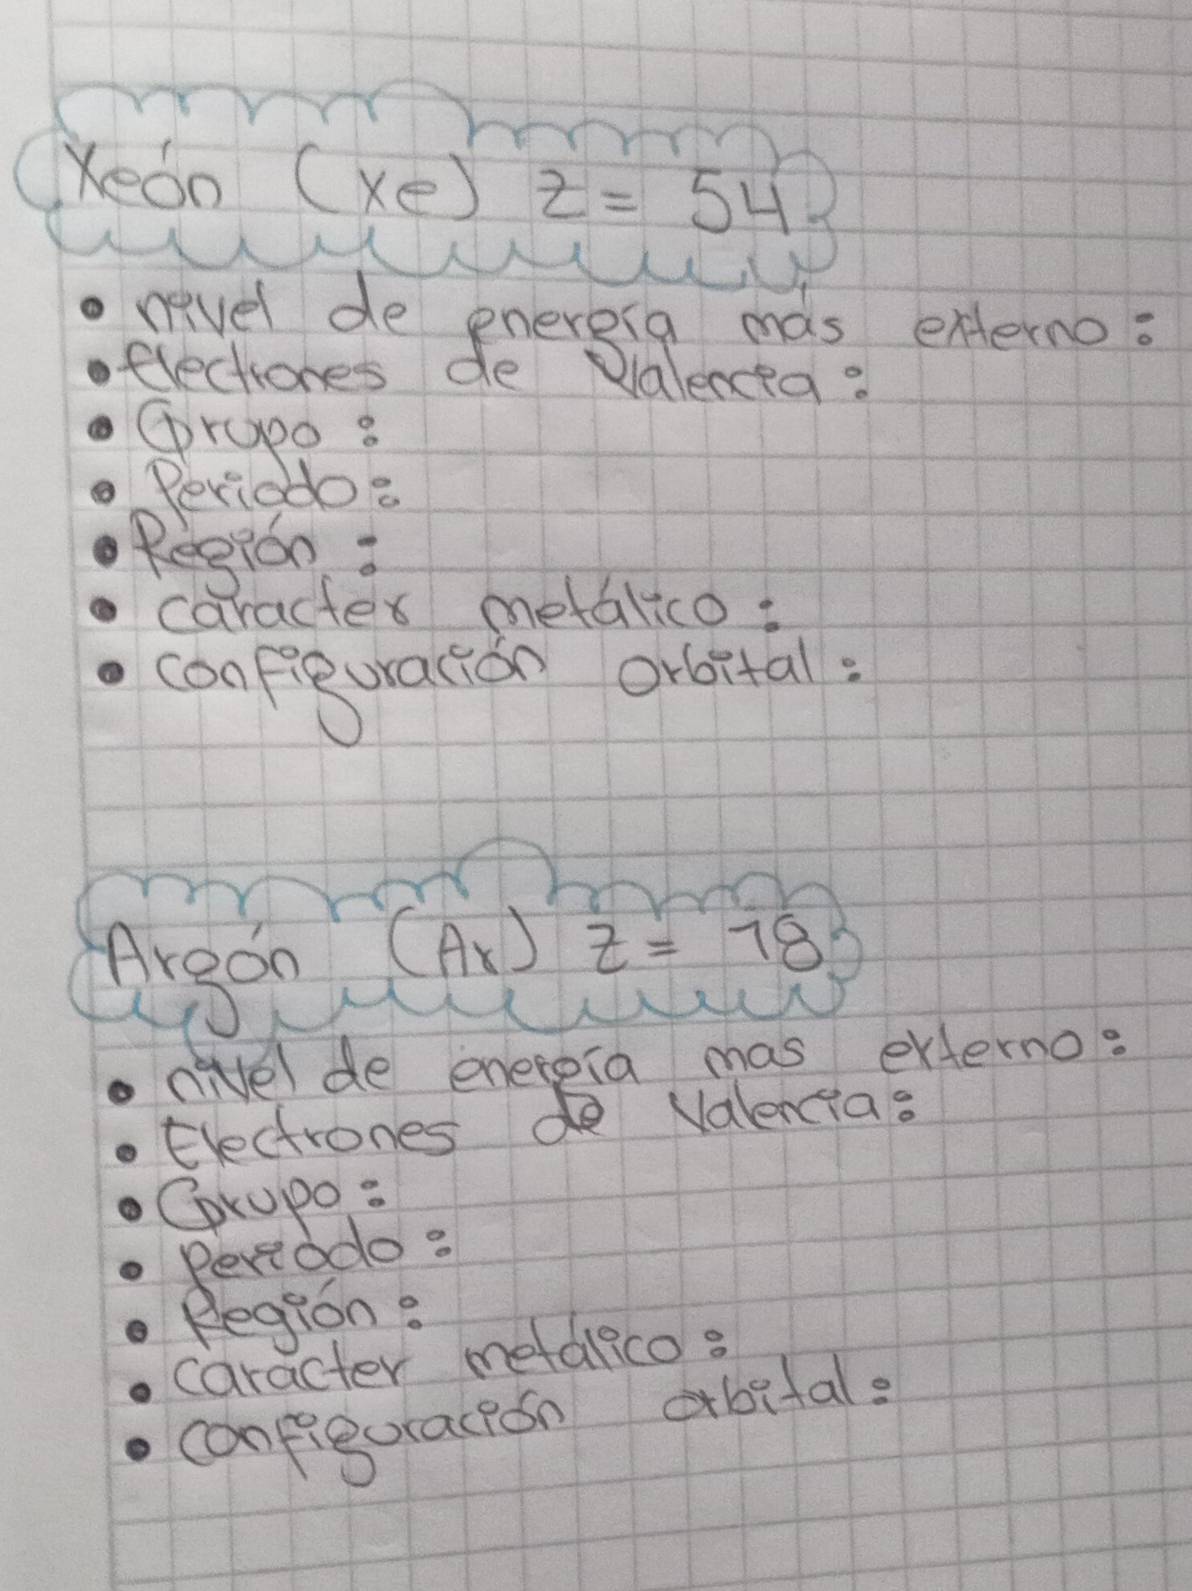 Xeón (Xe) Z = 54
• nivel de energía más externo:
• Electrones de Valencia:
• Grupo:
• Periodo:
• Región:
• caracter metálico:
• configuración orbital:
Argón (Ar) Z = 18
• nivel de energía mas externo:
• Electrones de Valencia:
• Grupo:
• Periodo:
• Región:
• caracter metálico:
• configuración orbital: